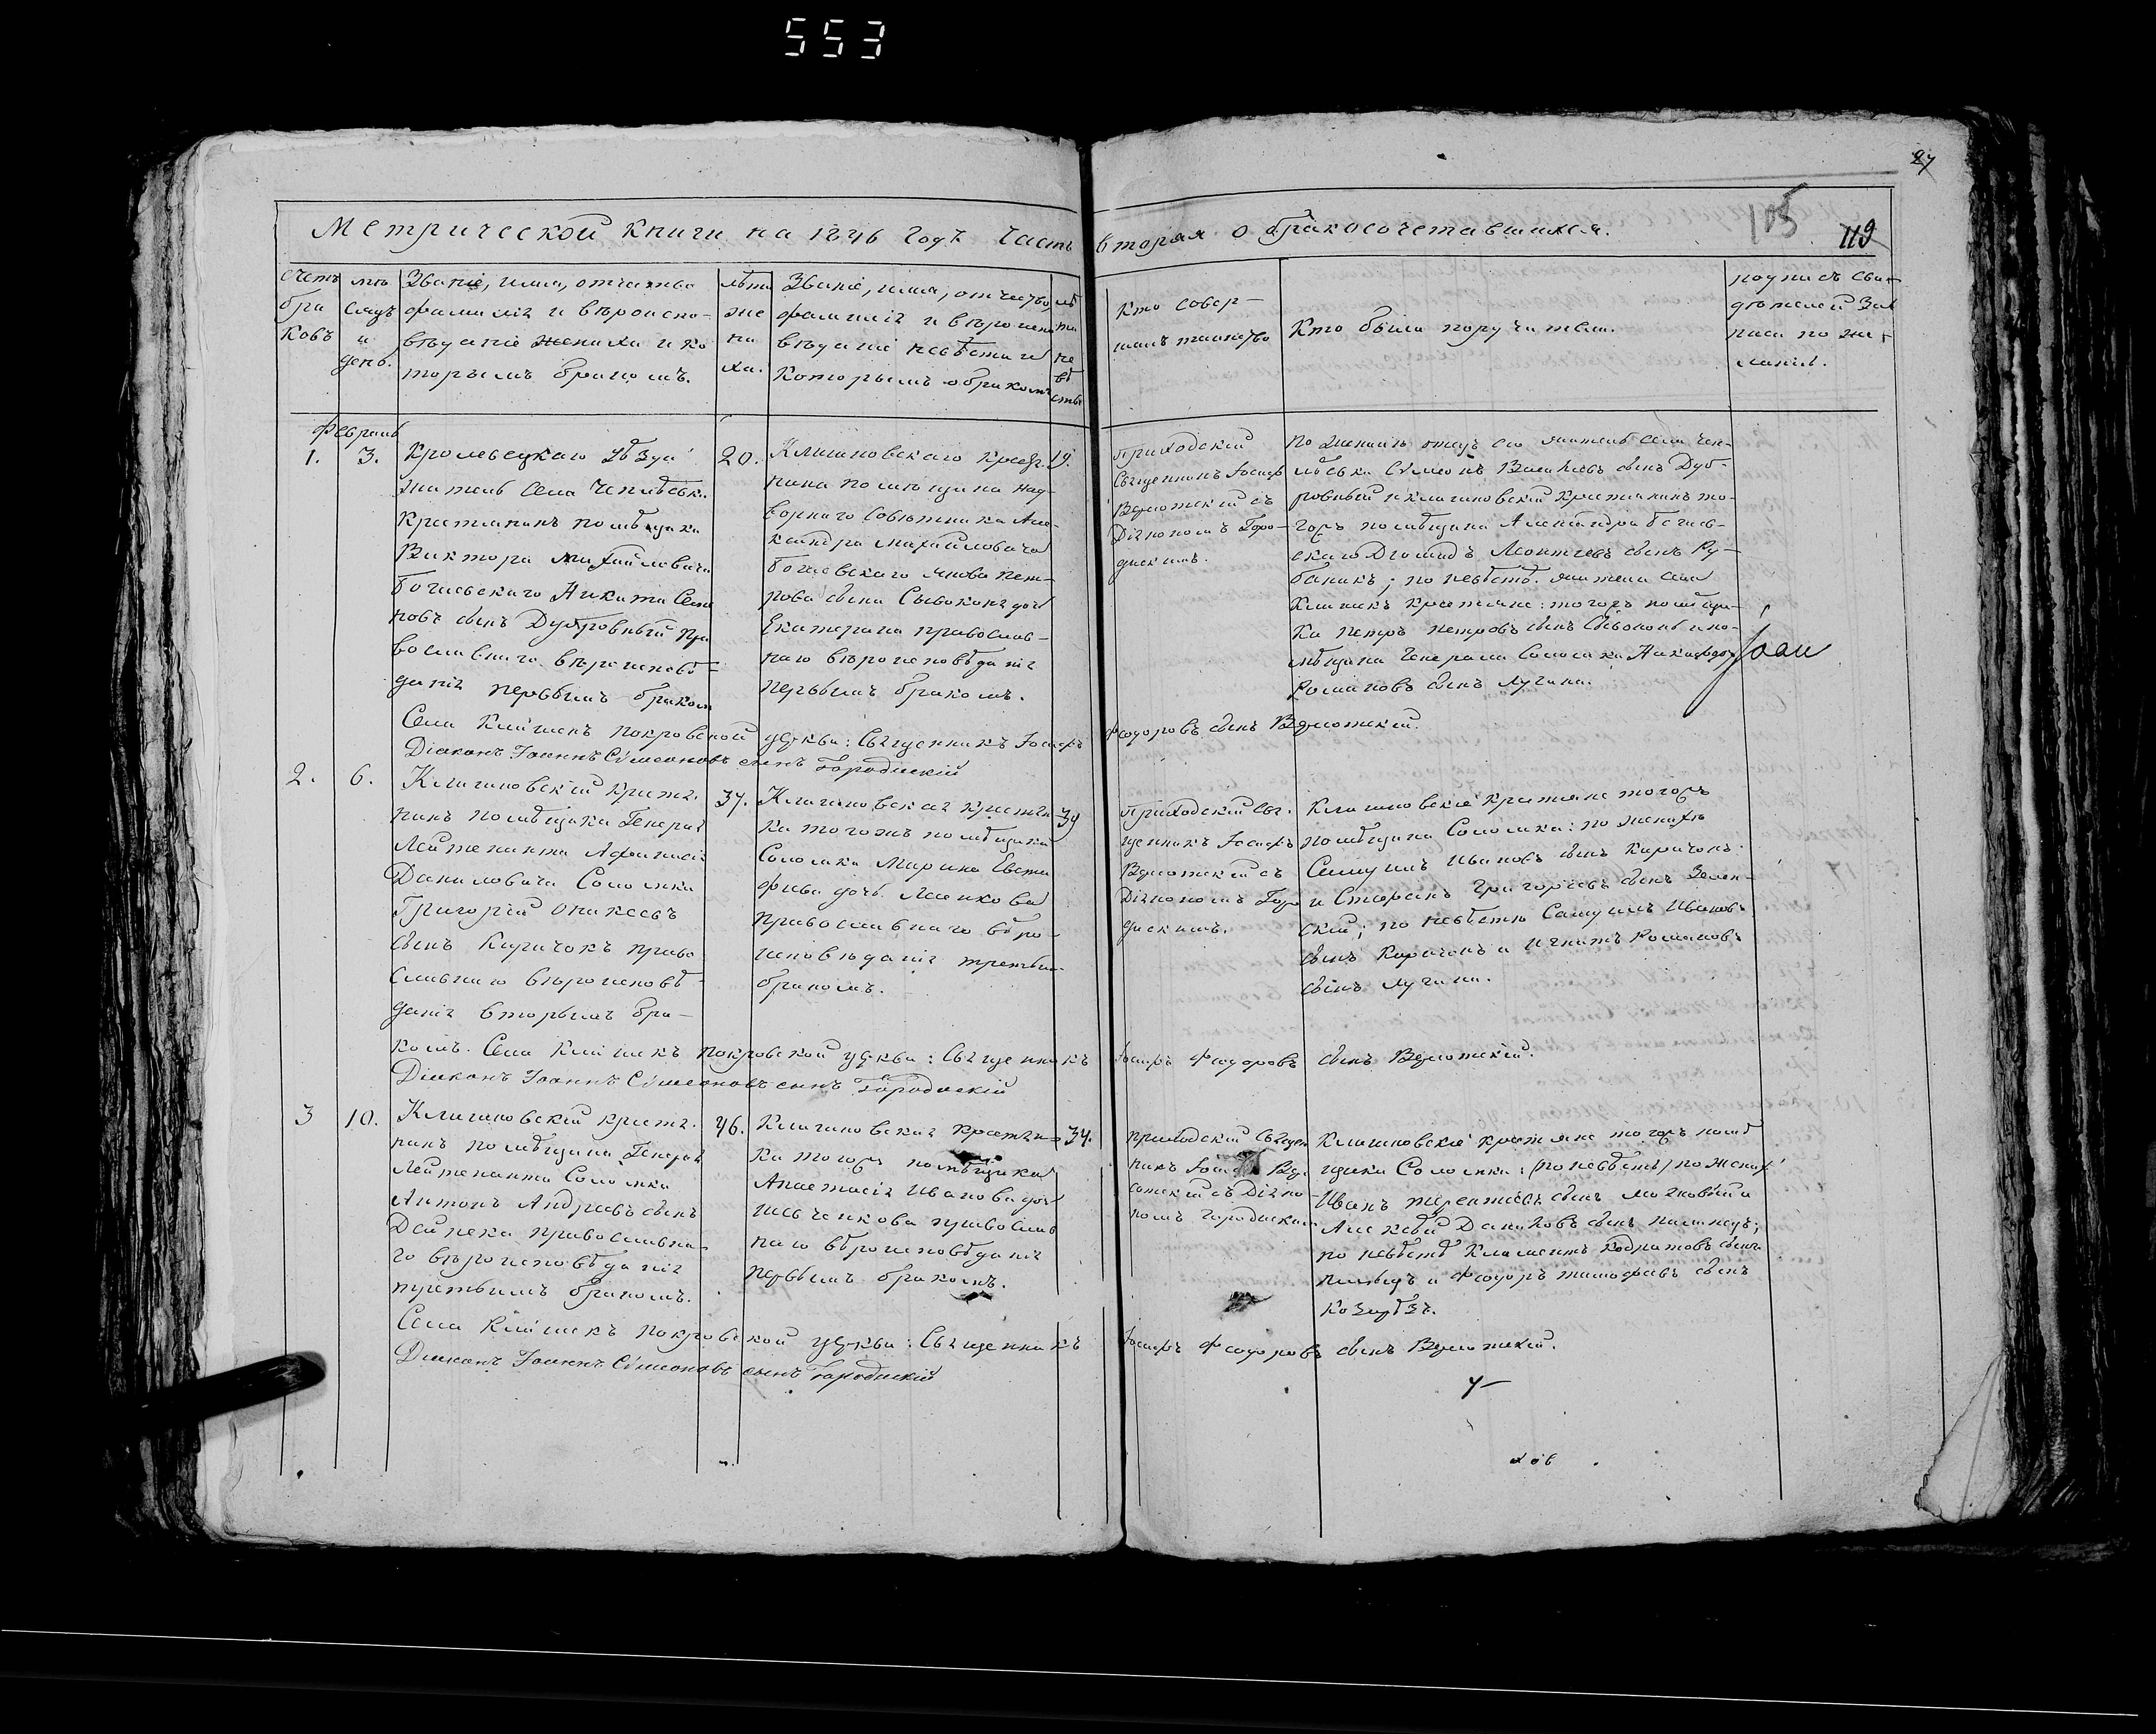 553
87
105
119
Метрической книги на 1846 годъ часть вторая о бракосочетавшихся.
Счетъ
бра
ковъ
мѣ
сяцъ
и
день.
Званіе, имя, отчество
фамилія и вѣроиспо-
вѣданіе жениха и ко
торымъ бракомъ.
лѣта
же
ни
ха.
Званіе, имя, отчество,
фамилія и вѣроиспо
вѣданіе невѣсты и
которымъ бракомъ
лѣ
та
не
вѣ
сты
Кто совер-
шалъ таинство
Кто были поручители.
подпись сви-
дѣтелей за
писи по же-
ланію.
Февраль
1. 3.
Кролевецкаго уѣзда
житель села
Крестьянинъ помѣщика
Виктора Михайловича
Богаевскаго Никита Семе
новъ сынъ Дубровный пра
вославнаго вѣроисповѣ-
данія первымъ бракомъ
20.
Клишковскаго крестья
нина помѣщика над-
ворнаго совѣтника Але-
ксандра Михайловича
Богаевскаго Пет-
рова сына дочь
Екатерина православ-
наго вѣроисповѣданія
первымъ бракомъ.
19.
Приходскій
Священникъ Іосифъ
съ
Діакономъ Горо-
дискимъ.
По женихѣ отецъ его житель села
Сѵмеонъ сынъ Дуб-
ровный и клишковскій крестьянинъ то-
гожъ помѣщика Александра Богаев-
скаго Леонтіевъ сынъ Ру-
банъ; по невѣстѣ жители села
Клишекъ крестьяне: тогожъ помѣщи-
ка Петръ Петровъ сынъ и по-
мѣщика Генерала Соломки
Романовъ сынъ Лучина.
Села Клишекъ Покровской церкви: Священникъ Іосифъ Федоровъ сынъ
Діаконъ Іоаннъ Сѵмеоновъ сынъ Городискій
2. 6.
Клишковскій крестья
нинъ помѣщика Генералъ
Лейтенанта Афанасія
Даниловича Соломки
Григорій
сынъ Киричокъ право
славнаго вѣроисповѣ-
данія вторымъ бра-
комъ.
37.
Клишковская крестьян
ка тогожъ помѣщика
Соломки Марина Евста
фіева дочь
православнаго вѣро-
исповѣданія третьимъ
бракомъ.
39
Приходскій свя
щенникъ Іосифъ
съ
Діакономъ Горо
дискимъ.
Клишковскіе крестьяне тогожъ
помѣщика Соломки: по женихѣ
Самуилъ Ивановъ сынъ Киричокъ
и Стефанъ Григорьевъ сынъ Зелен-
скій; по невѣстѣ Самуилъ Ивановъ
сынъ Киричокъ и Игнатъ Романовъ
сынъ Лучина.
Села Клишекъ Покровской церкви: Священникъ Іосифъ Федоровъ сынъ
Діаконъ Іоаннъ Сѵмеоновъ сынъ Городискій
3 10.
Клишковскій крестья
нинъ помѣщика Генералъ
Лейтенанта Соломки
Антонъ Андреевъ сынъ
Дейнека православна-
го вѣроисповѣданія
третьимъ бракомъ.
46.
Клишковская крестьян
ка тогожъ помѣщика
Анастасія Иванова дочь
Шевченкова православ
наго вѣроисповѣданія
первымъ бракомъ.
34.
Приходскій священ
никъ
съ Діако-
номъ Городискимъ
Клишковскіе крестьяне тогожъ помѣ
щика Соломки: (по невѣстѣ) по женихѣ
Иванъ Терентіевъ сынъ и
Алексѣй Даниловъ сынъ
по невѣстѣ Климентъ Кодратовъ сынъ
и Федоръ Тимофѣевъ сынъ
Села Клишекъ Покровской церкви: Священникъ Іосифъ Федоровъ сынъ
Діаконъ Іоаннъ Сѵмеоновъ сынъ Городискій